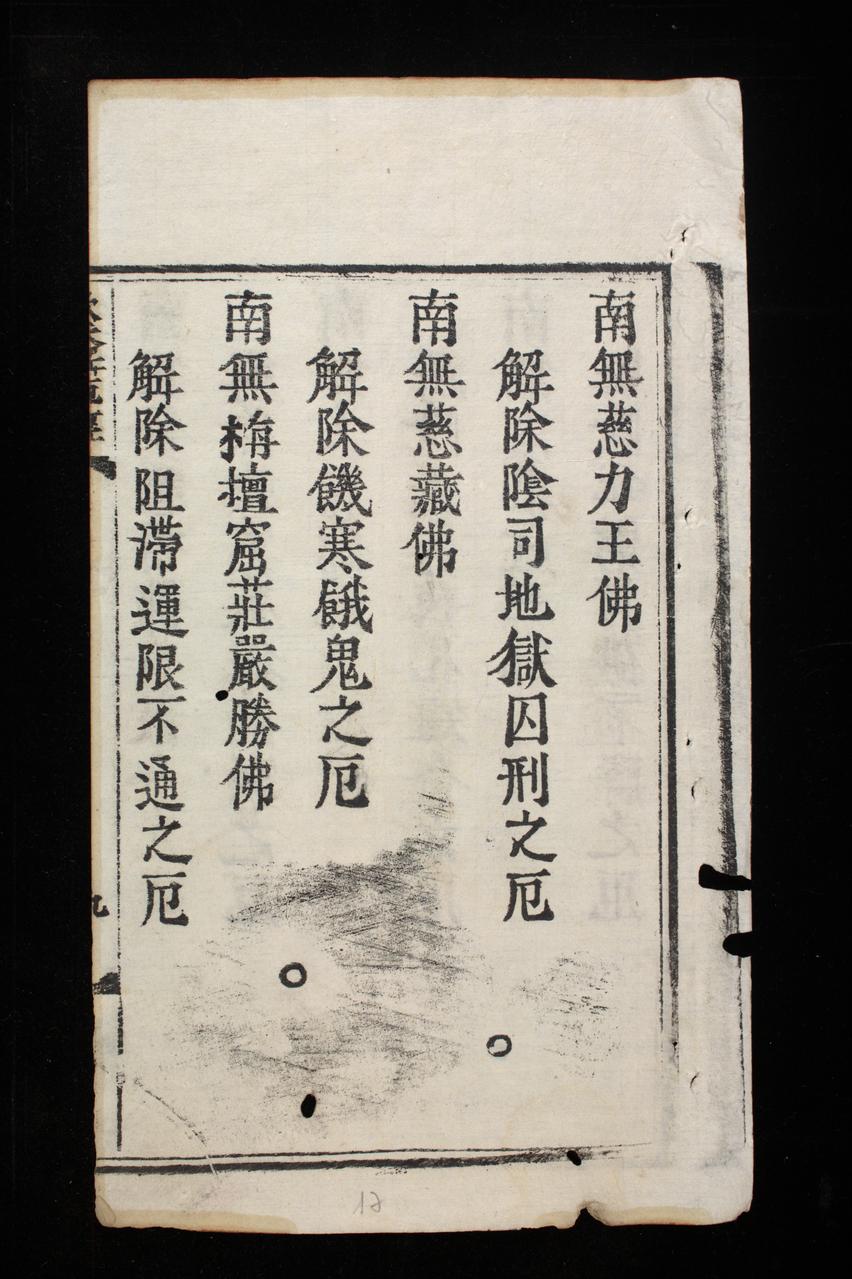 南無慈力王佛
解除陰司地獄囚刑之厄
南無慈藏佛
解除饑寒餓鬼之厄
南無栴壇窟莊嚴勝佛
解除阻滯運限不通之厄
九
17